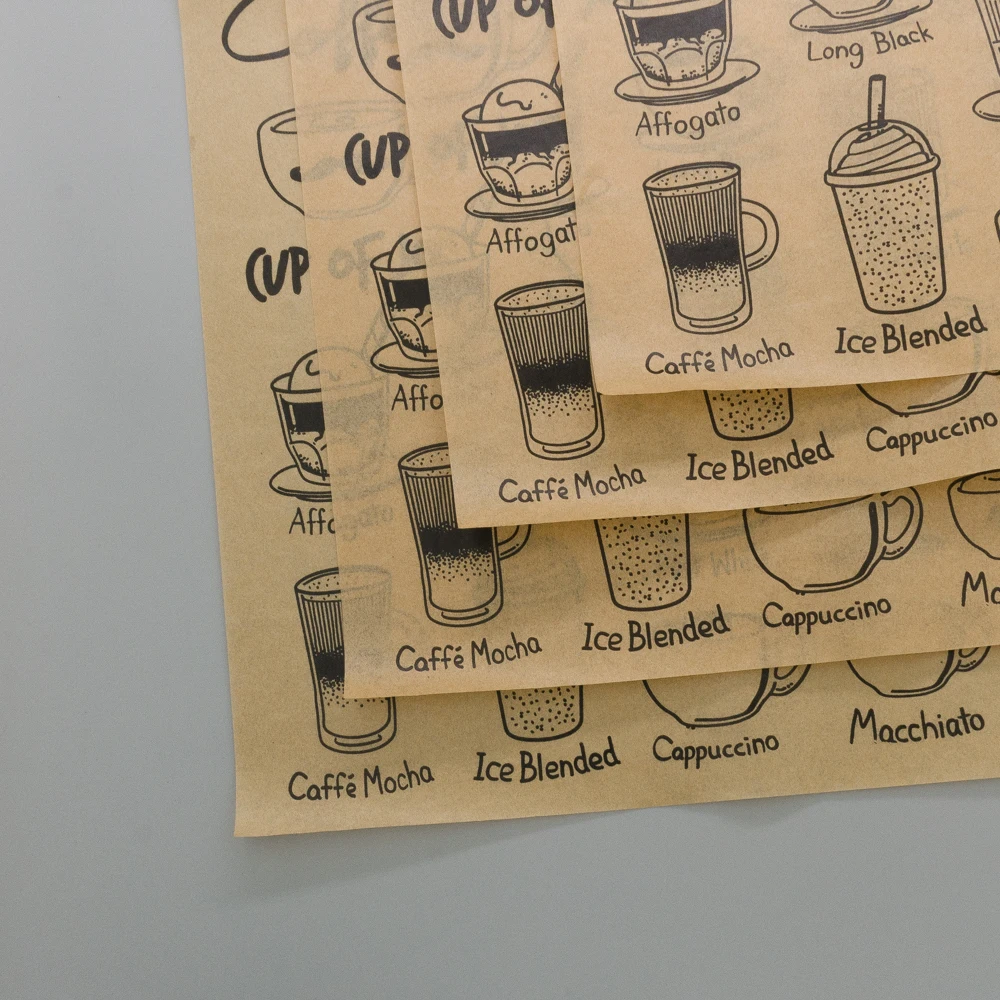 CUP OF
Long Black
Affogato
CUP
Affogat
CUP OF
Ice Blended
Caffé Mocha
Affo
Cappuccino
Ice Blended
Caffé Mocha
Affo
Cappuccino
Ice Blended
Caffé Mocha
Macchiato
Cappuccino
Ice Blended
Caffé Mocha